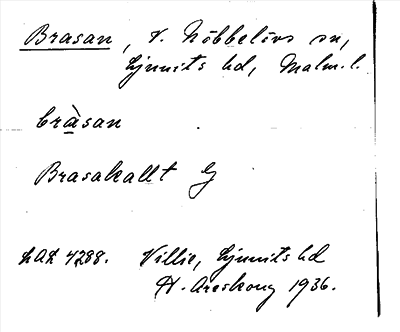 Brasan, V. Nöbbelövs sn,
Ljunits hd, Malm. l.
bràsan
Brasakallt G
LAL 4288. Villie, Ljunits hd
H. Areskoug 1936.